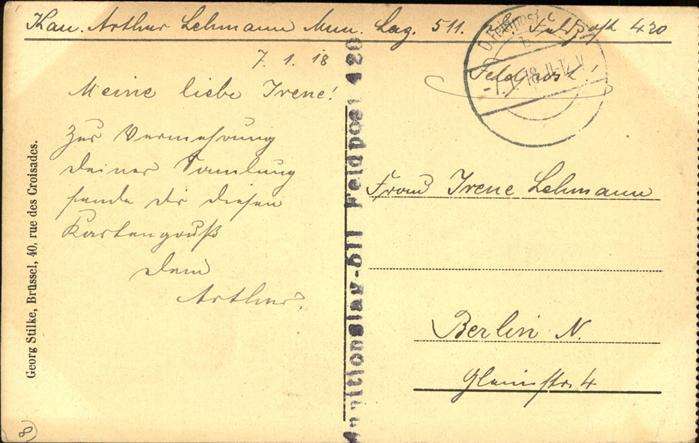 Kan. Arthur Lehmann Mun. Lag. 511. Feldpost 420
7.1.18
Meine liebe Irene!
Zur Vermehrung
deiner Samlung
sende dir diesen
Kartengruß
Dein
Arthur.
Georg Stilke, Brüssel, 40, rue des Croisades.
Munitionslag-511 Feldpost 420
Feldpost!
-7.1.18.11-12V
Frau Irene Lehmann
Berlin N.
Gleimstr. 4
8